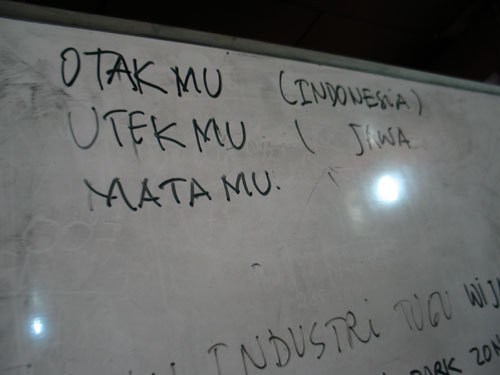 OTAKMU (INDONESIA)
UTEKMU ( JAWA
MATAMU.
INDUSTRI TUGU WIJ
PARK ZON